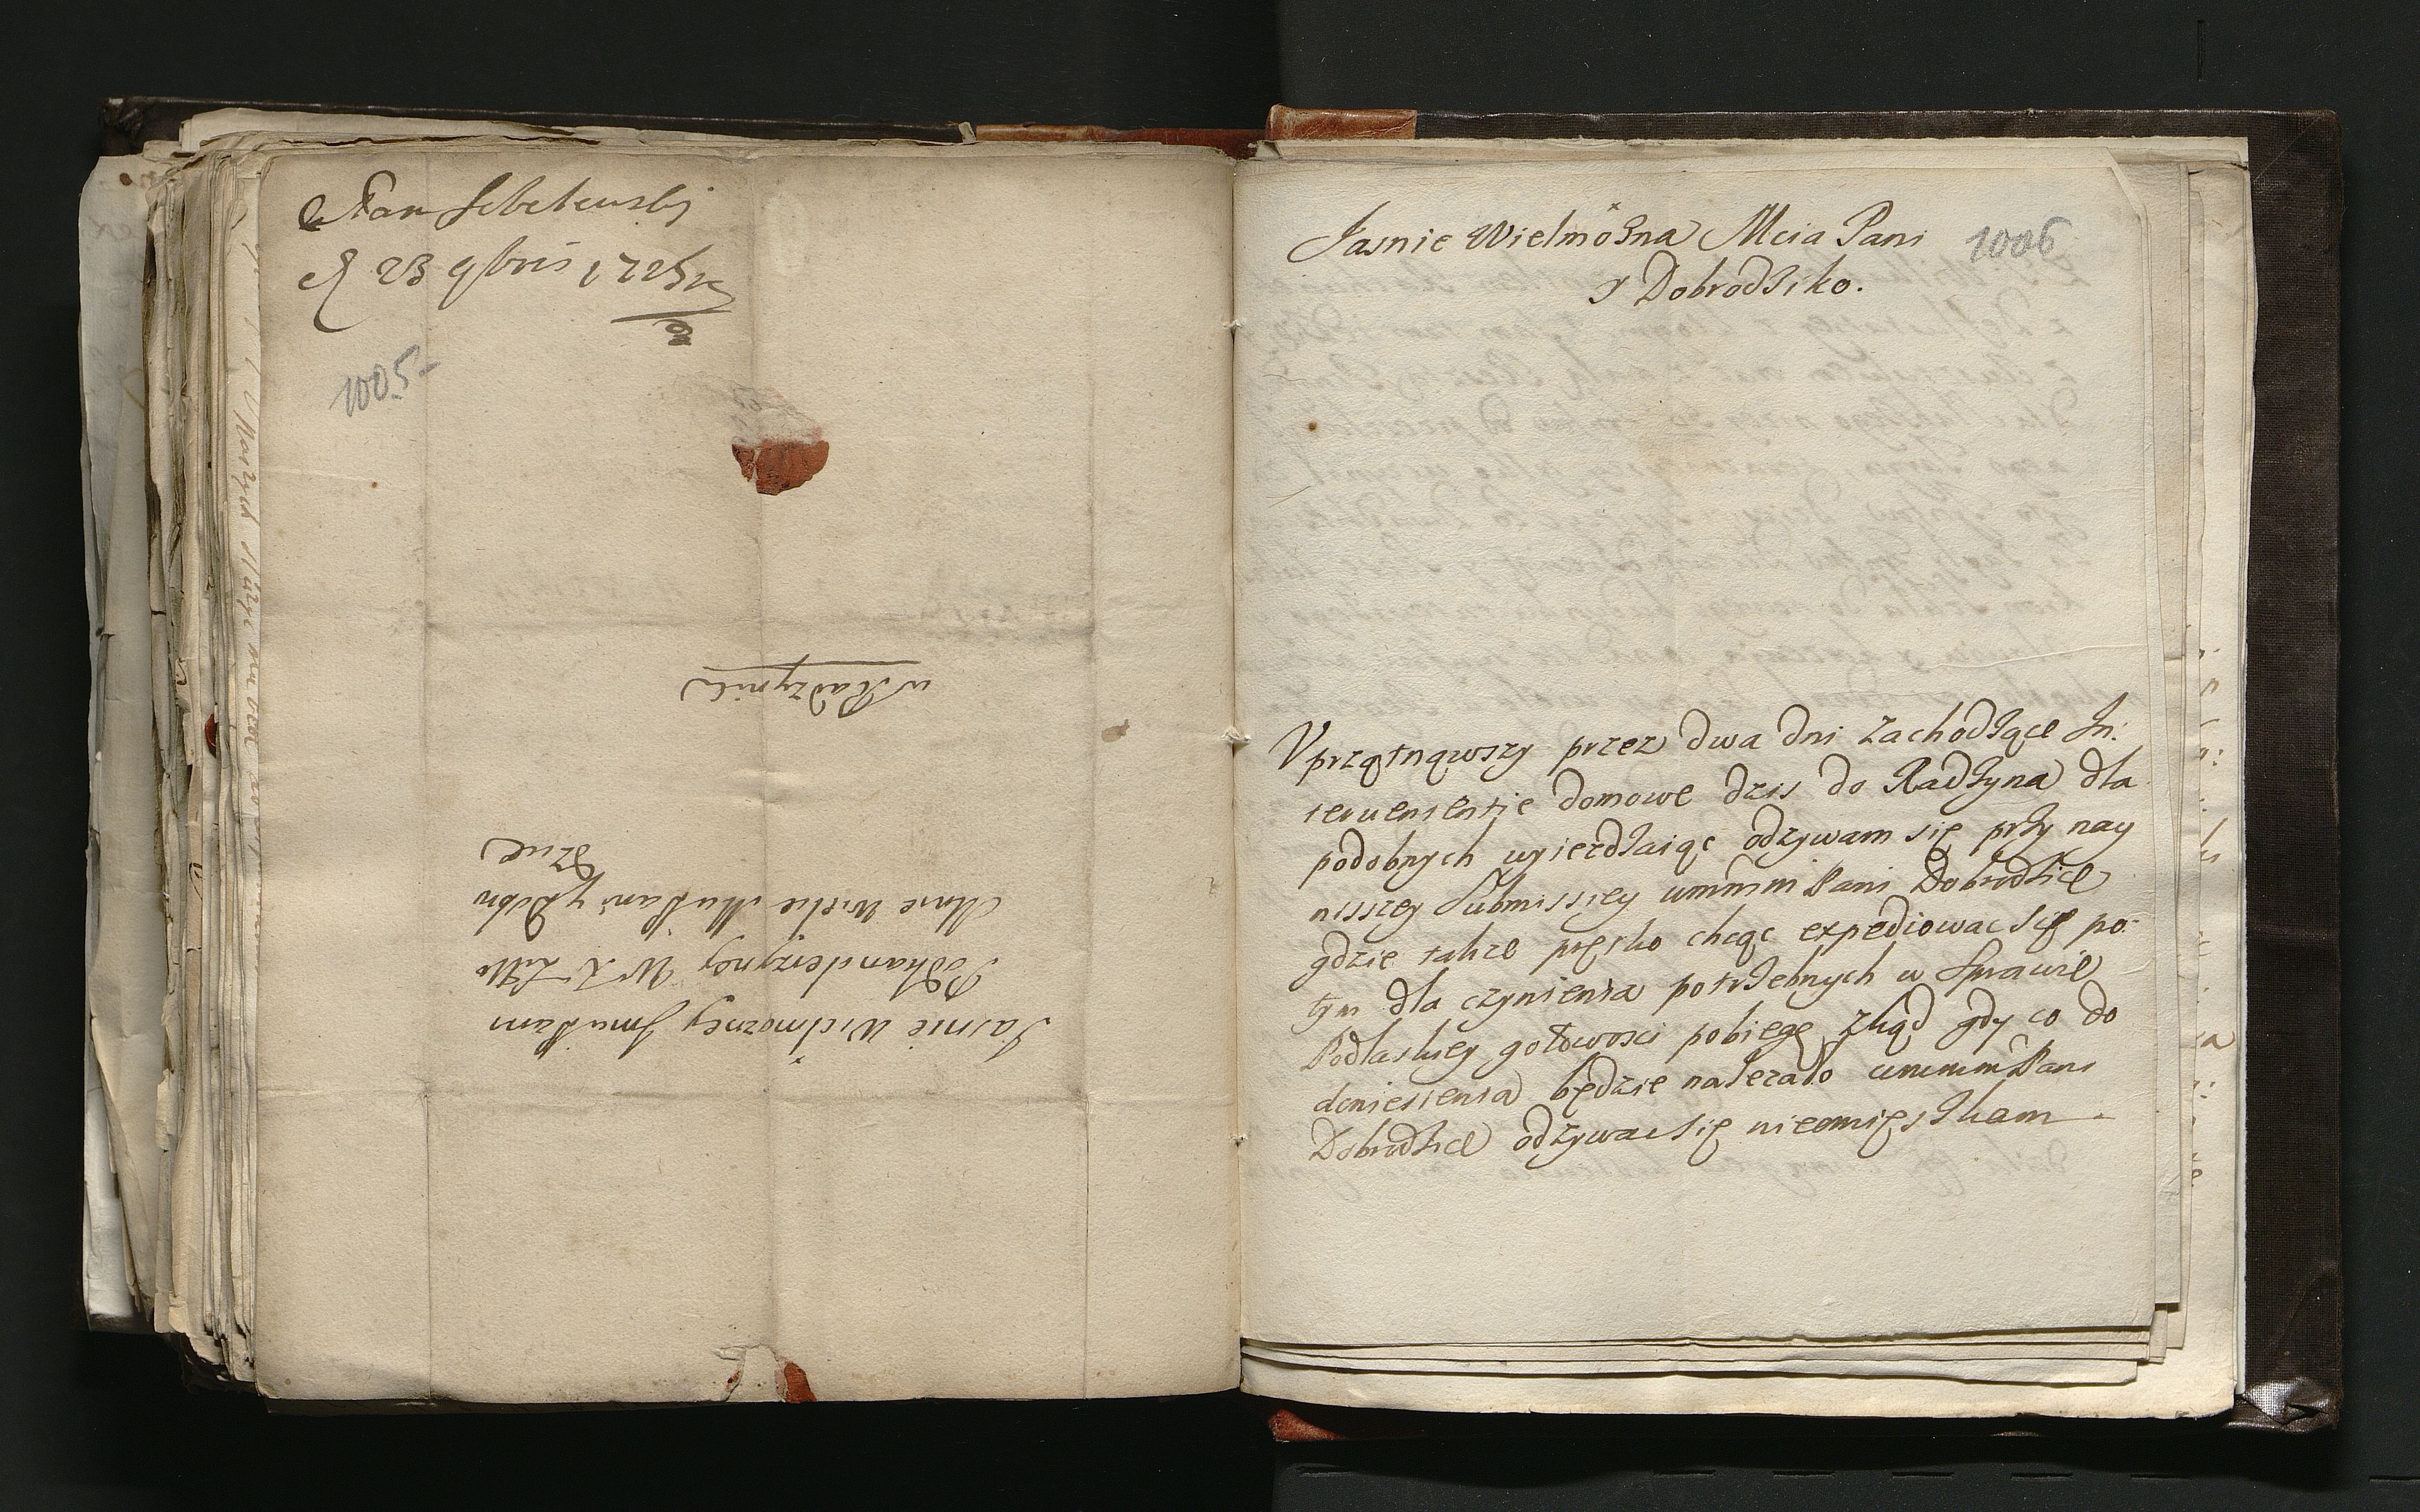 Pan Lebetowski
23 9bris 1725
1005
Jasnie Wielmozney Jmci Pani
Podkanclerzyney W X Litto
Mnie Wielce Mci Pani y Dobro
dzice
w Radzynie
Jasnie Wielmożna Mcia Pani
y Dobrodziko.
1006
Vprzątnąwszy przez dwa dni zachodzące In:
teruenientie domowe dzis do Radzyna dla
podobnych wyiezdzaiąc odzywam się przy nay
nisszey Submissiey wmm Pani Dobrodzice
gdzie takze prętko chcąc expediowac się po
tym dla czynienia potrzebnych w Sprawie
Podlaskiey gotowosci pobiegę zkąd gdy co do
doniesienia będzie nalezało wmmm Pani
Dobrodzice odzywac się nieomięszkam